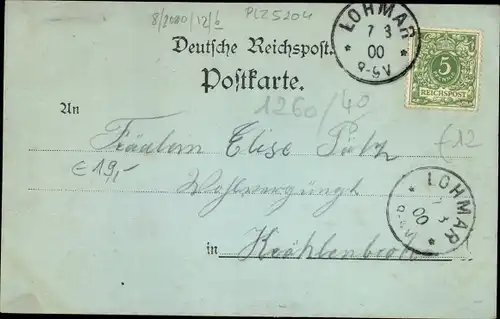 8/2000/12/6 PLZ 5204
LOHMAR
7 3
00
8-9V
5
REICHSPOST
Deutsche Reichspost.
Postkarte.
1260/40
An
€12
Fräulein Elise
€19,-
Wohlgeb.
in
LOHMAR
7 3
00
8-9V